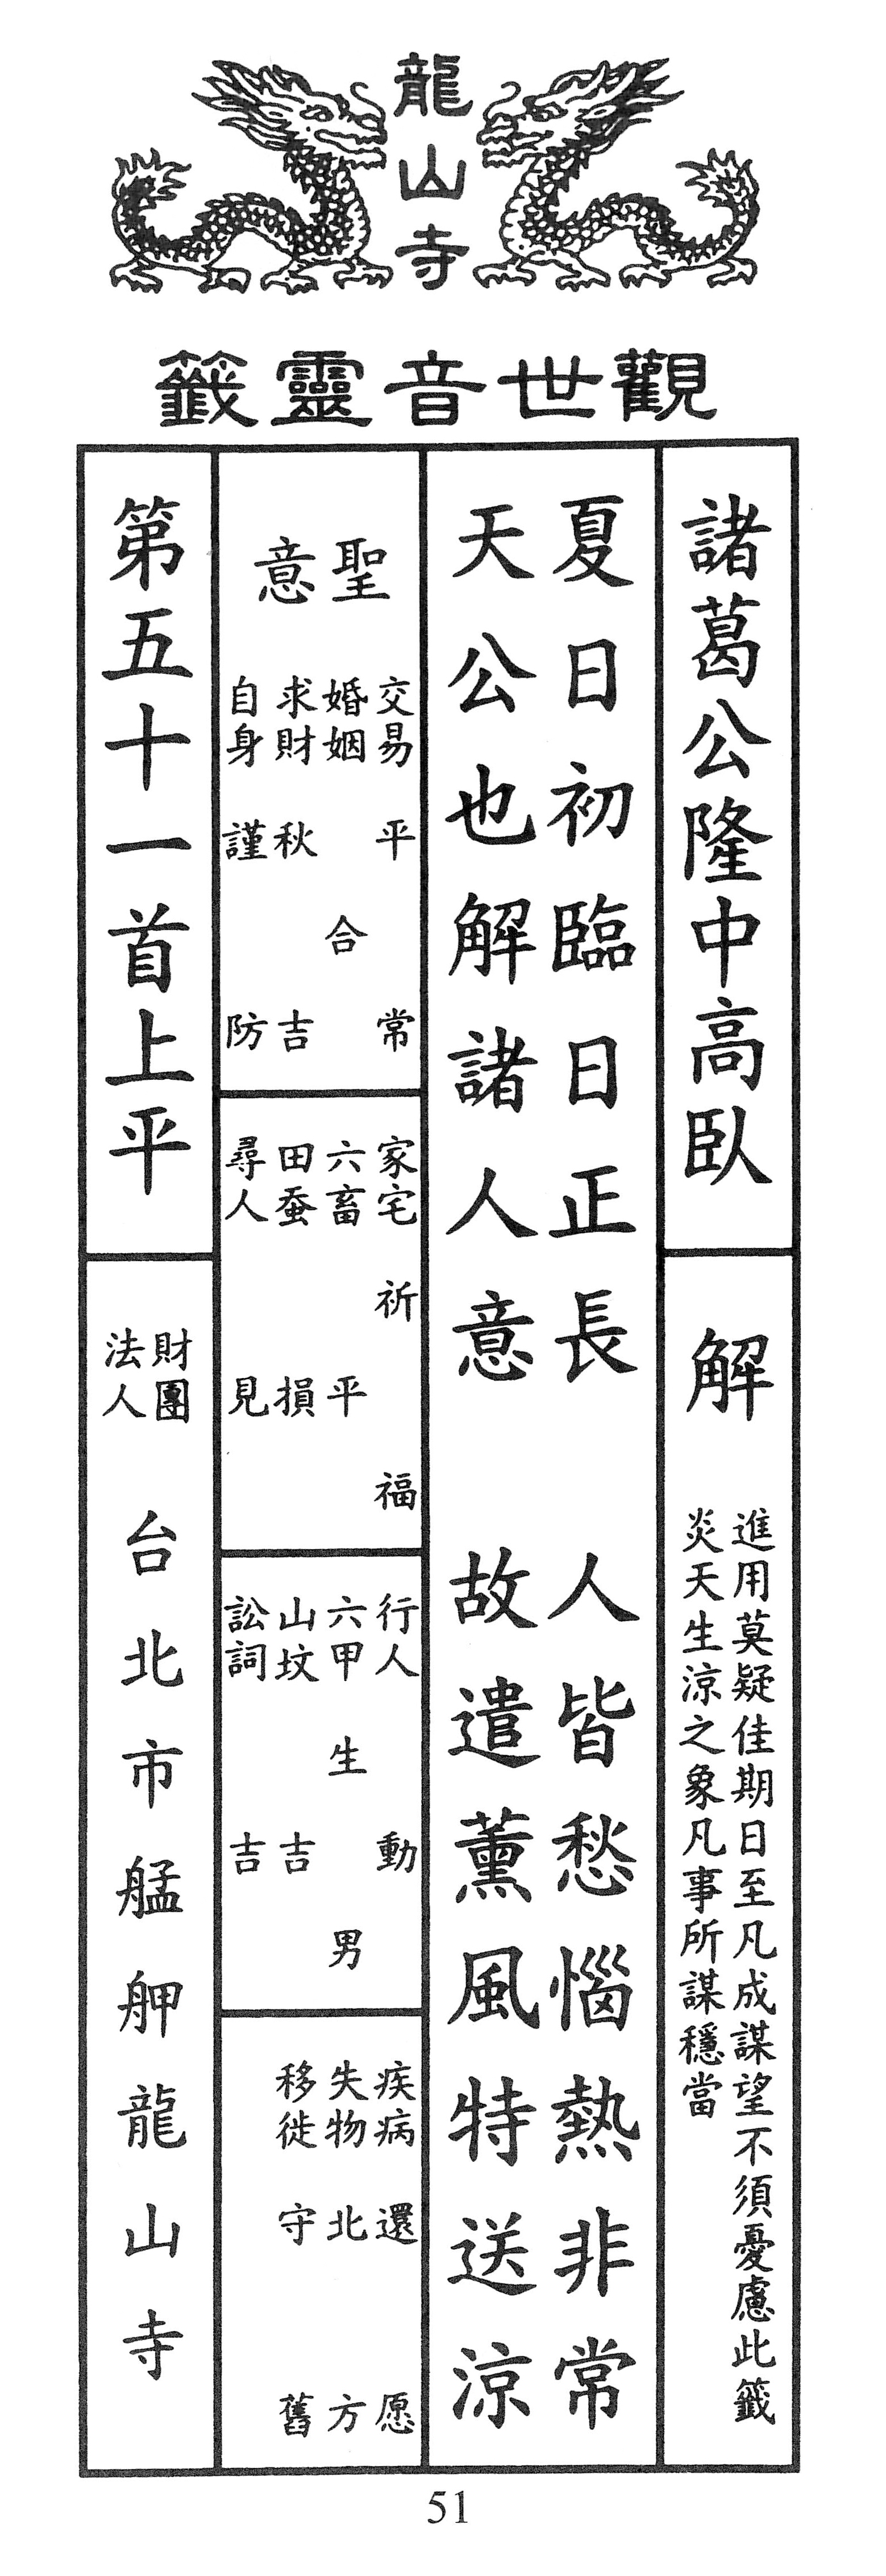 龍山寺
觀世音靈籤
諸葛公隆中高臥
解
進用莫疑佳期日至凡成謀望不須憂慮此籤
炎天生涼之象凡事所謀穩當
夏日初臨日正長　人皆愁惱熱非常
天公也解諸人意　故遣薰風特送涼
聖意
交易　平常
婚姻　合
求財　秋吉
自身　謹防
家宅　祈福
六畜　平
田蚕　損
尋人　見
行人　動
六甲　生男
山坟　吉
訟詞　吉
疾病　還愿
失物　北方
移徙　守舊
第五十一首上平
財團
法人
台北市艋舺龍山寺
51